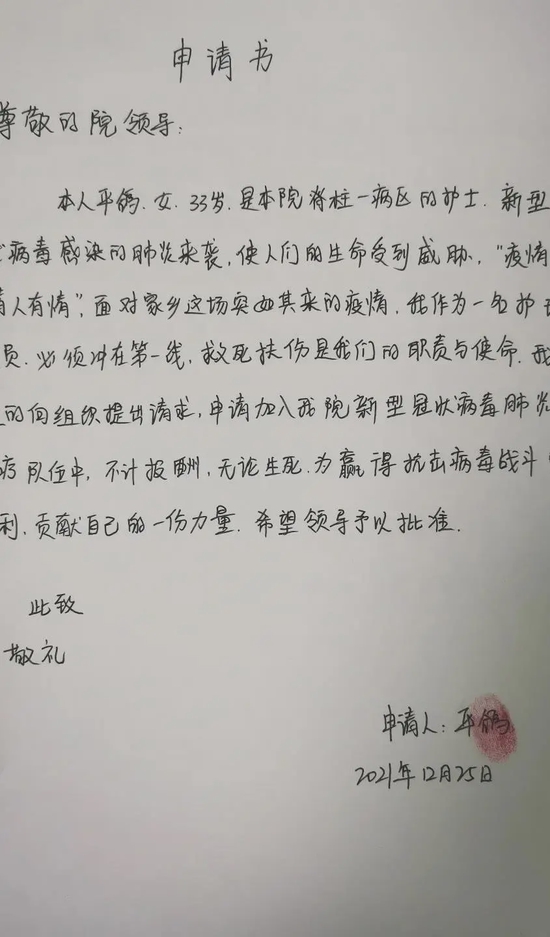 申请书
尊敬的院领导：
本人平鸽，女，33岁，是本院脊柱一病区的护士，新型
病毒感染的肺炎来袭，使人们的生命受到威胁，"疫情
人有情"，面对家乡这场突如其来的疫情，我作为一名护
员，必须冲在第一线，救死扶伤是我们的职责与使命，我
的向组织提出请求，申请加入我院新型冠状病毒肺炎
队伍中，不计报酬，无论生死，为赢得抗击病毒战斗
利，贡献自己的一份力量，希望领导予以批准。
此致
敬礼
申请人：平鸽
2021年12月25日